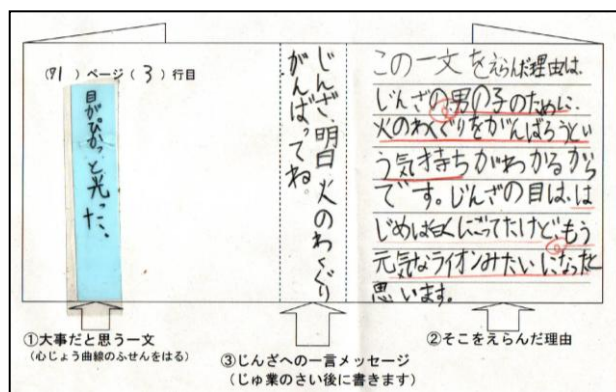 (91)ページ(3)行目
目がぴかっと光った。
じんざ、明日、火のわくぐり
がんばってね。
この一文をえらんだ理由は、
じんざの男の子のために、
火のわくぐりをがんばろうとい
う気持ちがわかるから
です。じんざの目は、は
じめは白くにごってたけど、もう
元気なライオンみたいになったと
思います。
①大事だと思う一文
(心じょう曲線のふせんをはる)
③じんざへの一言メッセージ
(じゅ業のさい後に書きます)
②そこをえらんだ理由